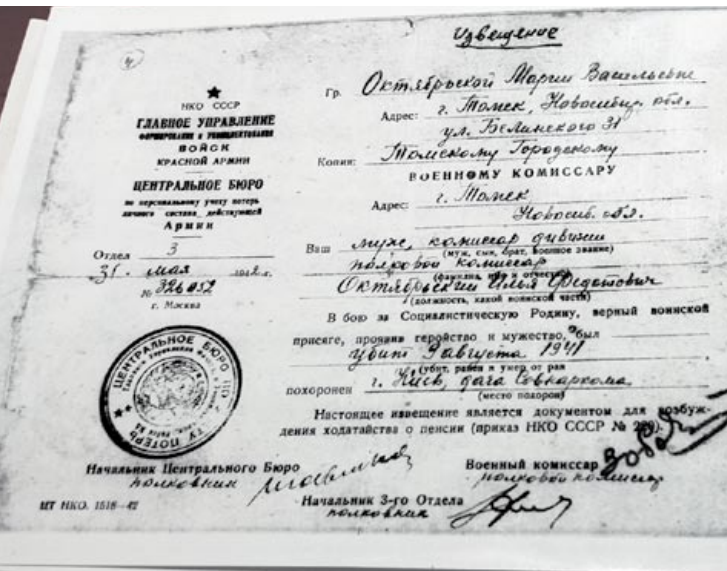 4
Извещение
НКО СССР
ГЛАВНОЕ УПРАВЛЕНИЕ
ФОРМИРОВАНИЯ И УКОМПЛЕКТОВАНИЯ
ВОЙСК
КРАСНОЙ АРМИИ
ЦЕНТРАЛЬНОЕ БЮРО
по персональному учету потерь
личного состава действующей
Армии
Отдел 3
31. мая 1942 г.
№ 326052
г. Москва
Гр. Октябрьской Марии Васильевне
Адрес: г. Томск, Новосибир. обл.
ул. Белинского 31
Копия: Томскому Городскому
ВОЕННОМУ КОМИССАРУ
Адрес: г. Томск
Новосиб. обл.
Ваш муж, комиссар дивизии
(муж, сын, брат, военное звание)
полковой комиссар
(фамилия, имя и отчество)
Октябрьский Илья Федотович
(должность, какой воинской части)
В бою за Социалистическую Родину, верный воинской
присяге, проявив геройство и мужество, был
убит 9 августа 1941
(убит, ранен и умер от ран
похоронен г. Киев, дача Совнаркома
(место похорон)
Настоящее извещение является документом для возбуж-
дения ходатайства о пенсии (приказ НКО СССР №
ЦЕНТРАЛЬНОЕ БЮРО ПО
ПОТЕРЬ
Начальник Центрального Бюро
полковник
Военный комиссар
полковой комиссар
Начальник 3-го Отдела
полковник
НКО. 1518—42